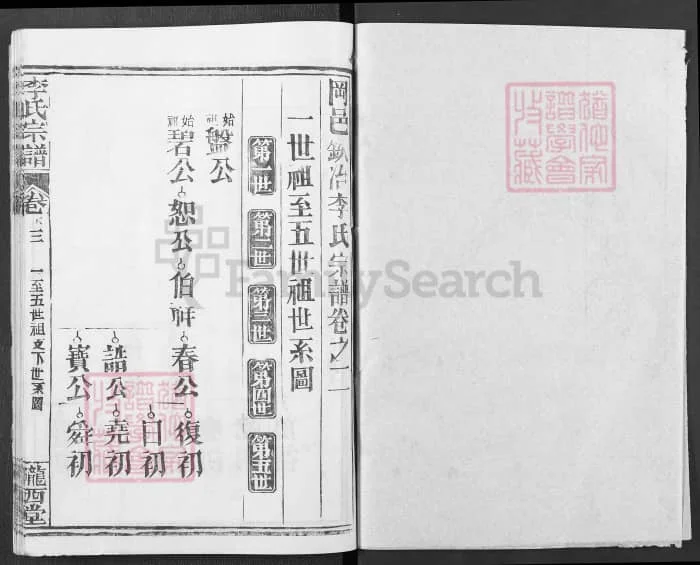 岡邑欽冶李氏宗譜卷之二
一世祖至五世祖世系圖
第一世 第二世 第三世 第四世 第五世
始祖盤公
始祖碧公 恕公 伯 春公 復初
日初
誥公 堯初
寶公 舜初
李氏宗譜 卷 三 一至五世祖支下世系圖 隴西堂
譜學會
收藏
FamilySearch